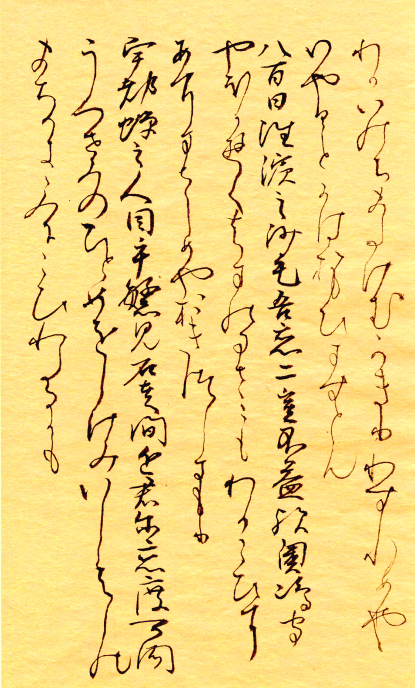 わかいのちまたけむかきりわすれめや
いやひことにはおもひますとん
八百日徃濱之沙毛吾戀二豈不益歟奥嶋守
やほかゆくはまのまさこもわかこひに
あにまさらめやおきつしまもり
宇都蝉之人目乎繁見石走間近君尓戀度可聞
うつせみのひとめをしけみいしはしの
まちかききみにこひわたるかも